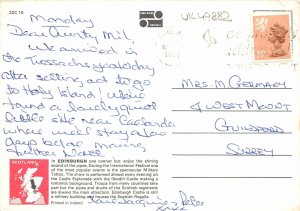 2SC 14
Monday
Dear Aunty Mil,
We arrived in
the Trossachs yesterday
after setting out to go
to Holy Island! We have
found a lovely quiet
public site near Callander
where we'll stay a few
days before moving
further North.
VIC49882
MRS. M GERMANY
WEST MOUNT
GUILDFORD
SURREY
SCOTLAND
In EDINBURGH one cannot but enjoy the stirring
sound of the pipes. During the International Festival one
of the most popular events is the spectacular Military
Tattoo. The show is performed almost every evening on
the Castle Esplanade with the floodlit Castle making a
romantic background. Troops from many countries take
part but the pipes and drums of the Scottish regiments
are always the main attraction. Edinburgh Castle is still
a military building and houses the Scottish Regalia.
Printed in Ireland